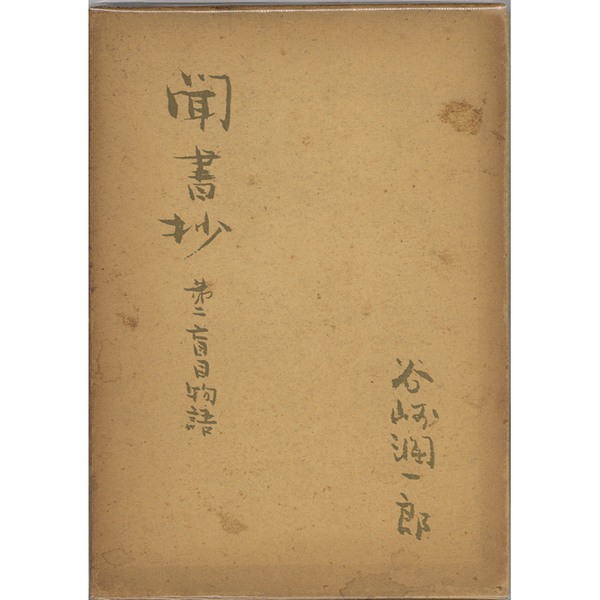 谷崎潤一郎
聞書抄
第二盲目物語